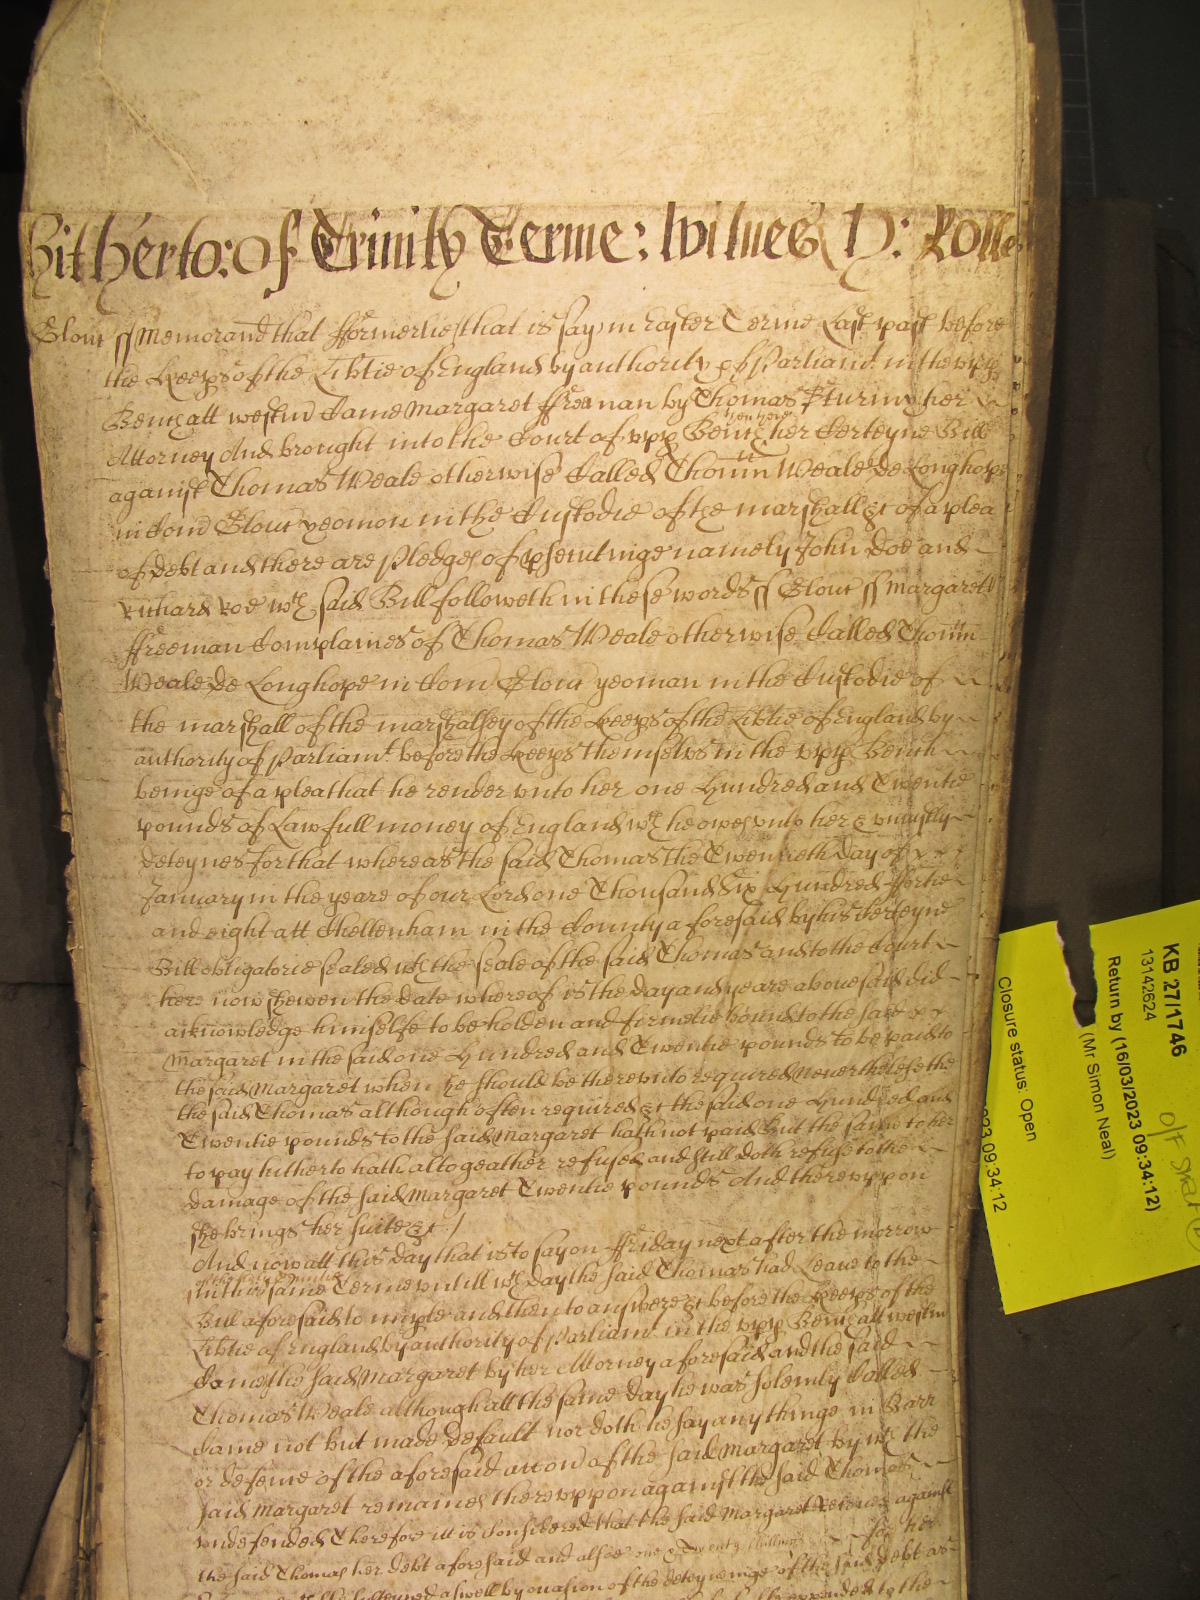 hitherto: Of Trinity Terme: Witnes H: Rolle
Glouc ss Memorand that fformerlie that is to say in Easter Terme Last past before
the Keeps of the Libtie of England by authority of Parliamt. in the upp
Bench att westm Came Margaret ffreeman by Thomas Sturmy her
Attorney And brought into the Court of upp Bench then here her Certeyne Bill
against Thomas Weale otherwise Called Thomn Weale De Longhope
in Com Glouc yeoman in the Custodie of the marshall &c of a plea
of Debt and there are Pledges of psecutinge namely John Doe and
Richard Roe wch said Bill followeth in these words ss Glouc ss Margarett
ffreeman Complaines of Thomas Weale otherwise Called Thomn
Weale De Longhope in Com Glouc yeoman in the Custodie of
the marshall of the marshalsey of the Keeps of the Libtie of England by
authority of Parliamt. before the Keeps themselvs in the upp Bench
beinge of a plea that he render unto her one Hundred and Twentie
pounds of Lawfull money of England wch he owes unto her & uniustly
deteynes for that whereas the said Thomas the Twentieth Day of
January in the yeare of our Lord one Thousand Six Hundred ffortie
and eight att Cheltenham in the County aforesaid by his Certeyne
Bill obligatorie sealed wth the seale of the said Thomas and to the Court
here now shewen the Date whereof is the day and yeare abovesaid did
acknowledge himselfe to be holden and firmelie bound to the said
Margaret in the said one Hundred and Twentie pounds to be paid to
the said Margaret when he should be thereunto required neverthelesse the
the said Thomas although often required &c the said one Hundred and
Twentie pounds to the said Margaret hath not paid but the same to her
to pay hitherto hath altogeather refused and still doth refuse to the
damage of the said Margaret Twentie pounds And thereuppon
she brings her suite &c /
And now att this day that is to say on ffriday next after the morrow
of the holy Trinitie
in this same Terme untill wch day the said Thomas had Leave to the
Bill aforesaid to imple and then to answere &c before the Keeps of the
Libtie of England by authority of Parliamt. in the upp Bench att westm
Came the said Margaret by her Attorney aforesaid and the said
Thomas Weale although att the same day he was solemly Called
Came not but made Default nor doth he say any thinge in Barr
or defence of the aforesaid accon of the said Margaret by wch the
said Margaret remaines thereuppon against the said Thomas
undefended Therefore itt is Considered that the said Margaret Recover against
the said Thomas her debt aforesaid and alsoe one & Twenty shillings for her
deteyninge of the said debt as
KB 27/1746
13142624
Return by (16/03/2023 09:34:12)
(Mr Simon Neal)
Closure status: Open
2023 09:34:12